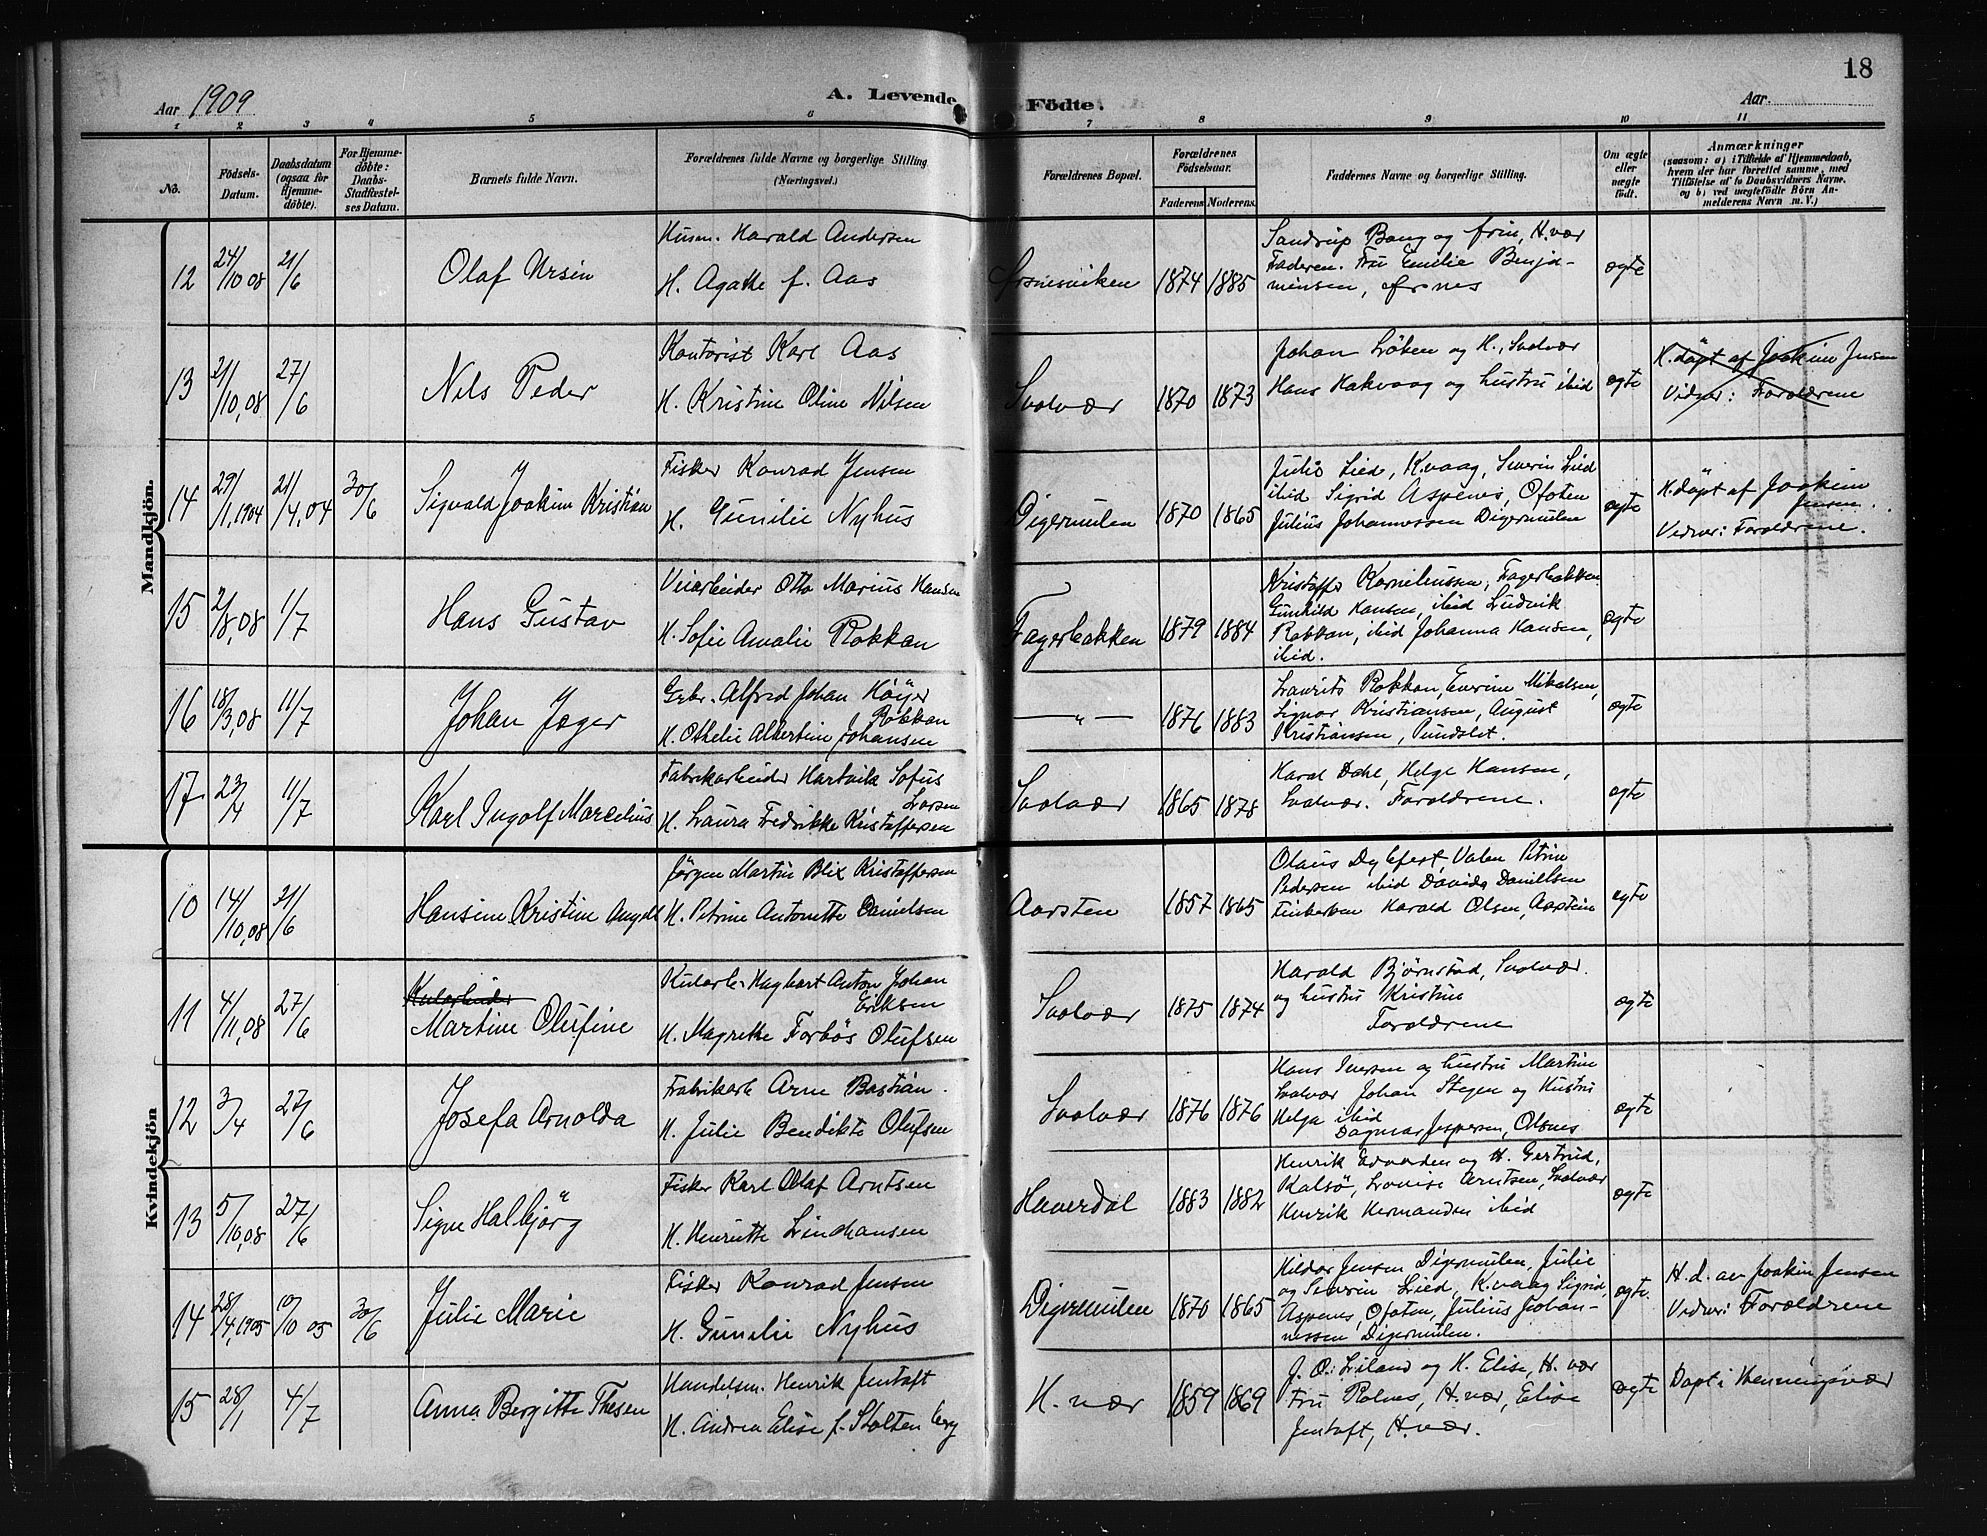 18
Aar 1909
A. Levende Födte.
Aar.
1 2 3 4 5 6 7 8 9 10 11
No.
Födsels-Datum.
Daabsdatum (ogsaa for Hjemme-döbte).
For Hjemme-döbte: Daabs-Stadfæstel-ses Datum.
Barnets fulde Navn.
Forældrenes fulde Navne og borgerlige Stilling.
(Næringsvei.)
Forældrenes Bopæl.
Forældrenes Födselsaar.
Faderens. Moderens.
Faddernes Navne og borgerlige Stilling.
Om ægte eller uægte födt.
Anmærkninger
(saasom: a) i Tilfælde af Hjemmedaab,
hvem der har forrettet samme, med
Tilføielse af to Daabsvidners Navne,
og b) ved uægtefödte Börn An-
melderens Navn m. V.)
Mandkjön.
12 24/10 08 21/6 Olaf Ursin
Husm. Harald Andersen
H. Agathe f. Aas
1874 1885
Sandrup Bang og frue, H.vær
Faderen. Fru Emilie Benja-
minsen,
ægte
13 21/10,08 27/6 Nils Peder
Kontorist Karl Aas
H. Kristine Oline Nilsen
Svolvær 1870 1873
Johan Løken og H., Svolvær
Hans Hakvaag og hustru ibid
ægte
H.døpt af Joakim Jensen
Vidner: Forældrene
14 29/1,1904 21/4,04 30/6 Sigvald Joakim Kristian
Fisker Konrad Jensen
H. Gunelie Nyhus
Digermulen 1870 1865
Julie Lied, Kvaag, Severin Lied
ibid Sigrid Aspenes, Ofoten
Julius Johannessen Digermulen
ægte
H.døpt af Joakim
Jensen.
Vidner: Forældrene.
15 2/8,08 1/7 Hans Gustav
Veiarbeider Otto Marius Hansen
H. Sofie Amalie Rokkan
Fagerbakken 1879 1884
Kristoffe Korneliussen, Fagerbakken
Gunhild Hansen, ibid Ludvik
Rokkan, ibid Johanna Hansen,
ibid.
ægte
16 18/3,08 11/7 Johan Jæger
Gbr. Alfred Johan Höÿer
Rokkan
H. Othelie Albertine Johansen
— " — 1876 1883
Laurits Rokkan, Everine Mikalsen,
Signar Kristiansen, August
Kristiansen, Pundslet.
ægte
17 23/4 11/7 Karl Ingolf Marcelius
Fabrikarbeider Hartvik Sofus
Larsen
H. Laura Fredrikke Kristoffersen
Svolvær 1865 1878
Karal Dahl, Helge Hansen,
Svolvær. Forældrene.
ægte
Kvindekjön
10 14/10,08 21/6 Hansine Kristine Angell
Jörgen Martin Blix Kristoffersen
H. Petrine Antonette Danielsen
Aarsten 1857 1865
Olaus Dybfest Valen Petrine
Pedersen ibid Davida Daniellsen
Finkerben Harald Olsen,
ægte
11 4/11,08 27/6 Kularbeider
Martine Olufine
Kularb. Hagbart Anton Johan
Eriksen
H. Magrethe Forbös Olufsen
Svolvær 1875 1874
Harald Bjørnstad, Svolvær.
og hustru Kristine
Forældrene
ægte
12 3/4 27/6 Josefa Arnolda
Fabrikarb Arne Bastian.
H. Julie Bendikte Olufsen
Svolvær 1876 1876
Hans Iversen og hustru Martine
Svolvær Johan Stegen og Hustru
Helga ibid
Dagmar Jespersen, Olsnes
ægte
13 5/10,08 27/6 Signe Halbjörg
Fisker Karl Olaf Arntsen
H. Henriette Lindhansen
Haverdal 1883 1882
Henrik Edvardsen og H. Gertrud,
Kalsö, Lovise Arntsen, Svolvær
Henrik Hermandsen ibid
ægte
14 28/4,1905 10/10 05 30/6 Julie Marie
Fisker Konrad Jensen
H. Gunelie Nyhus
Digermulen 1870 1865
Hildar Jensen Digermulen, Julie
og Severin Lied, Kvaag Sigrid
Aspenes, Ofoten, Julius Johan-
nessen Digermulen.
ægte.
H.d. av Joakim Jensen
Vidner: Forældrene
15 28/1 4/7 Anna Bergitte Thesen
Handelsm. Henrik Jentoft
H. Andrea Elise f. Stoltenberg
H.vær 1859 1869
J. O. Liland og H. Elise, H.vær
Fru Rolnes, H.vær, Elise
Jentoft, H.vær.
ægte
Døpt i Henningsvær